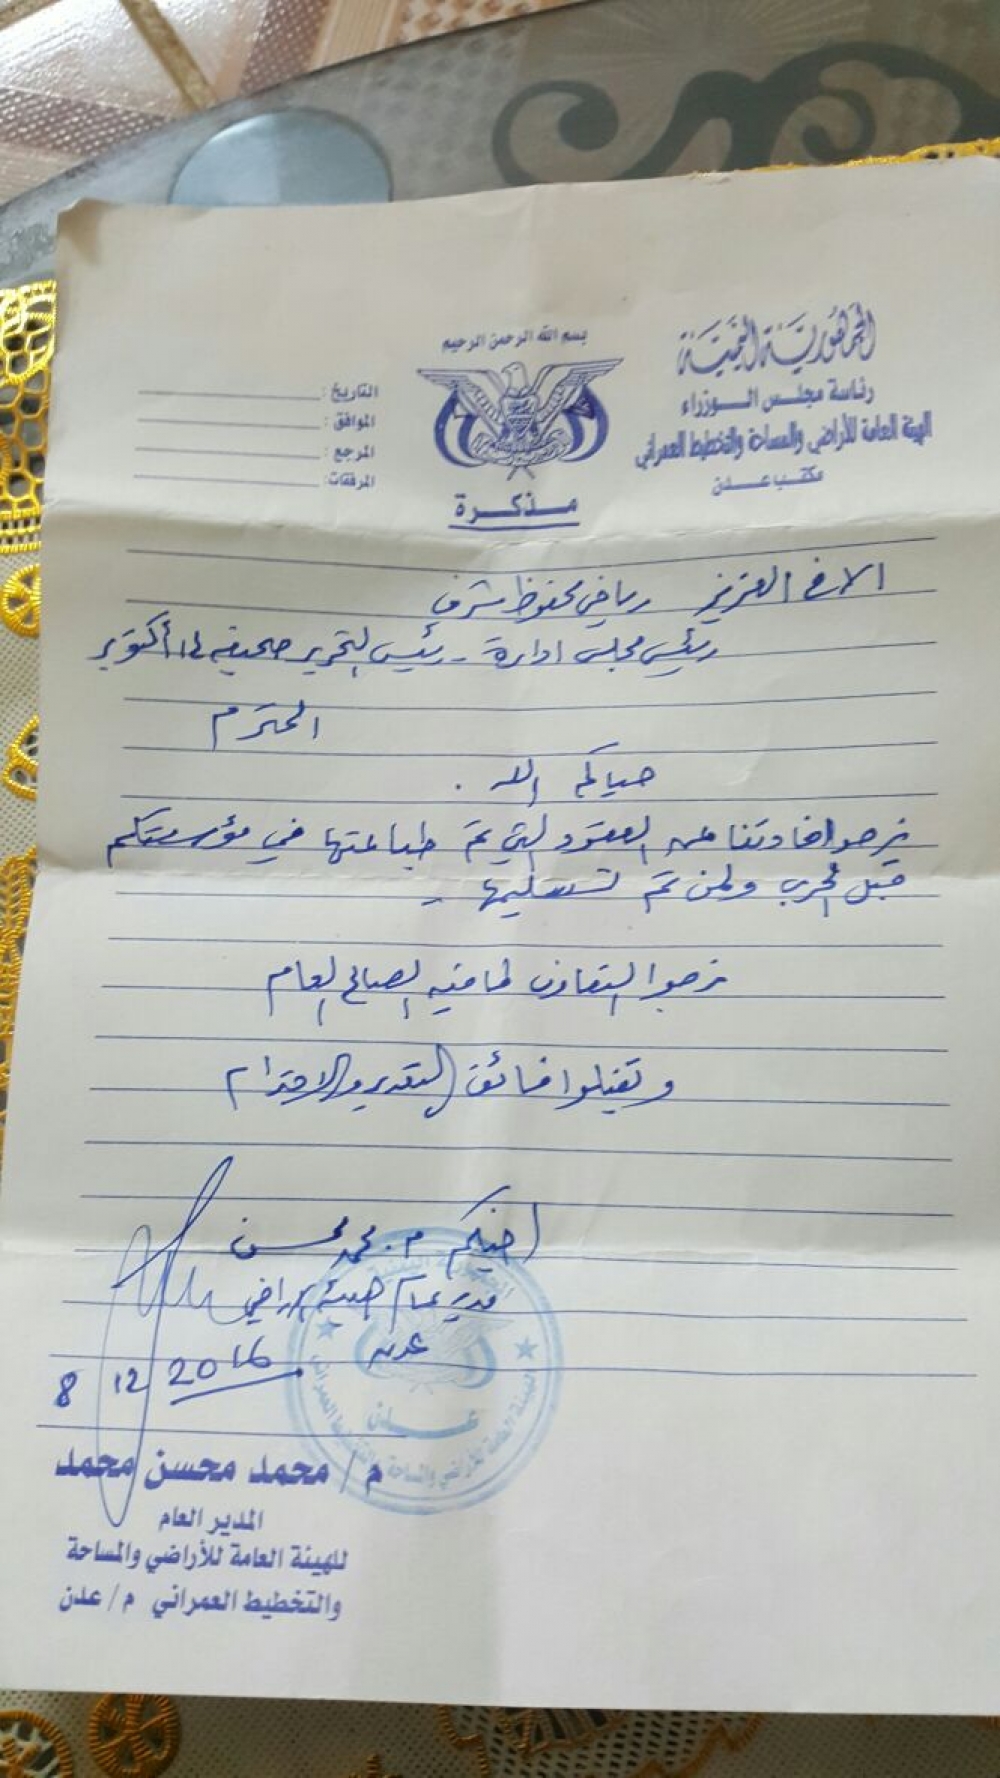 بسم الله الرحمن الرحيم
الجمهورية اليمنية
رئاسة مجلس الوزراء
الهيئة العامة للأراضي والمساحة والتخطيط العمراني
مكتب عدن
التاريخ:
الموافق:
المرجع:
المرفقات:
مذكرة
الاخ العزيز رياض محفوظ شرف
رئيس مجلس ادارة - رئيس التحرير صحيفة 14 أكتوبر
المحترم
حياكم الله .
نرجوا افادتنا عن العقود التي تم طباعتها في مؤسستكم
قبل الحرب ولمن تم تسليمها -
نرجوا التعاون لما فيه الصالح العام
وتقبلوا فائق التقدير والاحترام
اخيكم م. محمد محسن
مدير عام هيئة اراضي
عدن
8 12 2016
عدن
م/ محمد محسن محمد
المدير العام
للهيئة العامة للأراضي والمساحة
والتخطيط العمراني م/ عدن